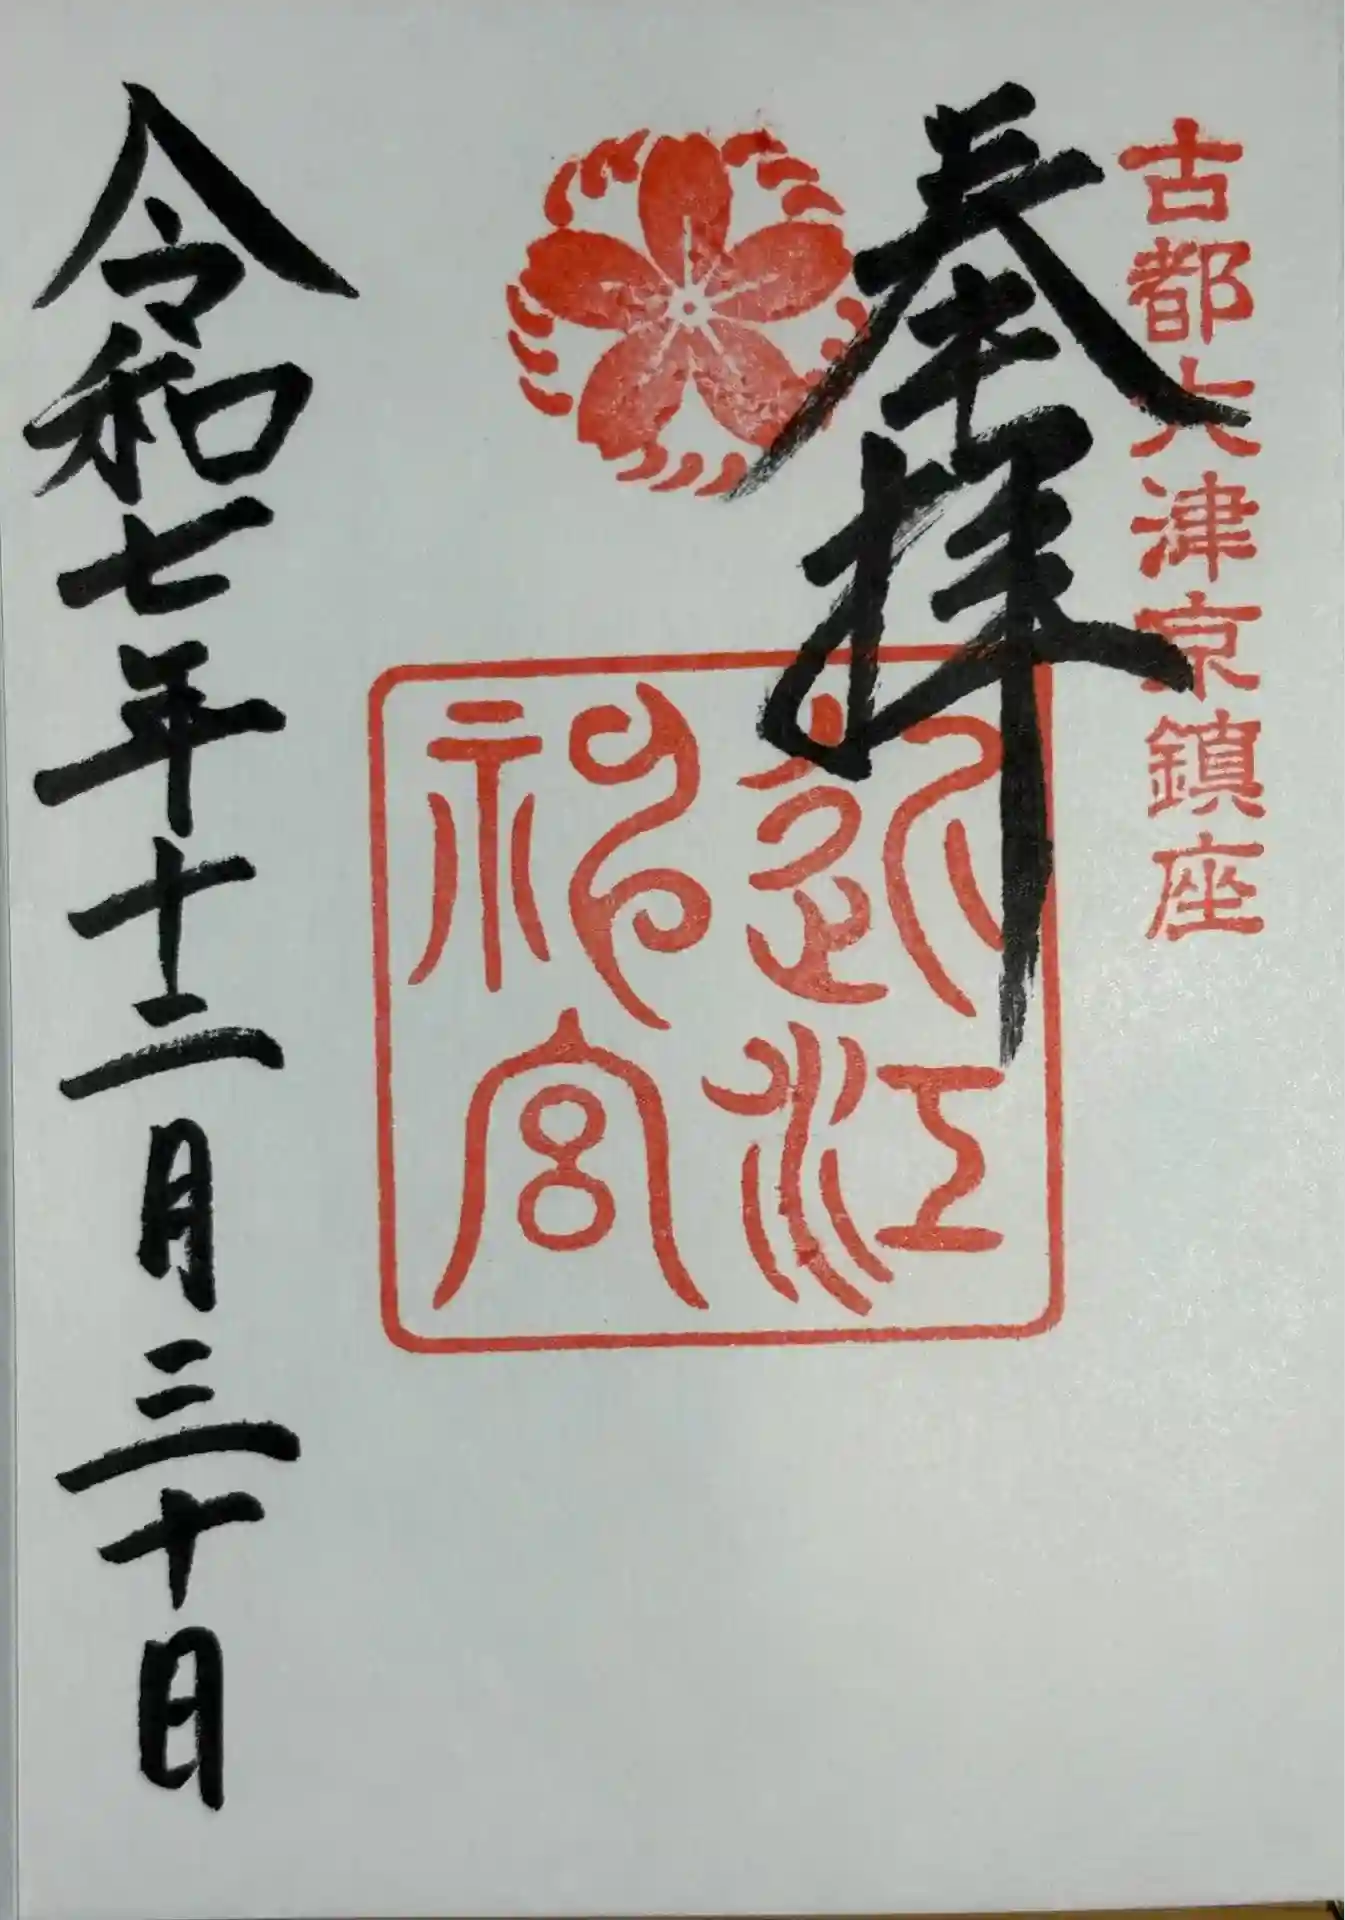 古都大津京鎮座
奉拝
近江神宮
令和七年十二月三十日